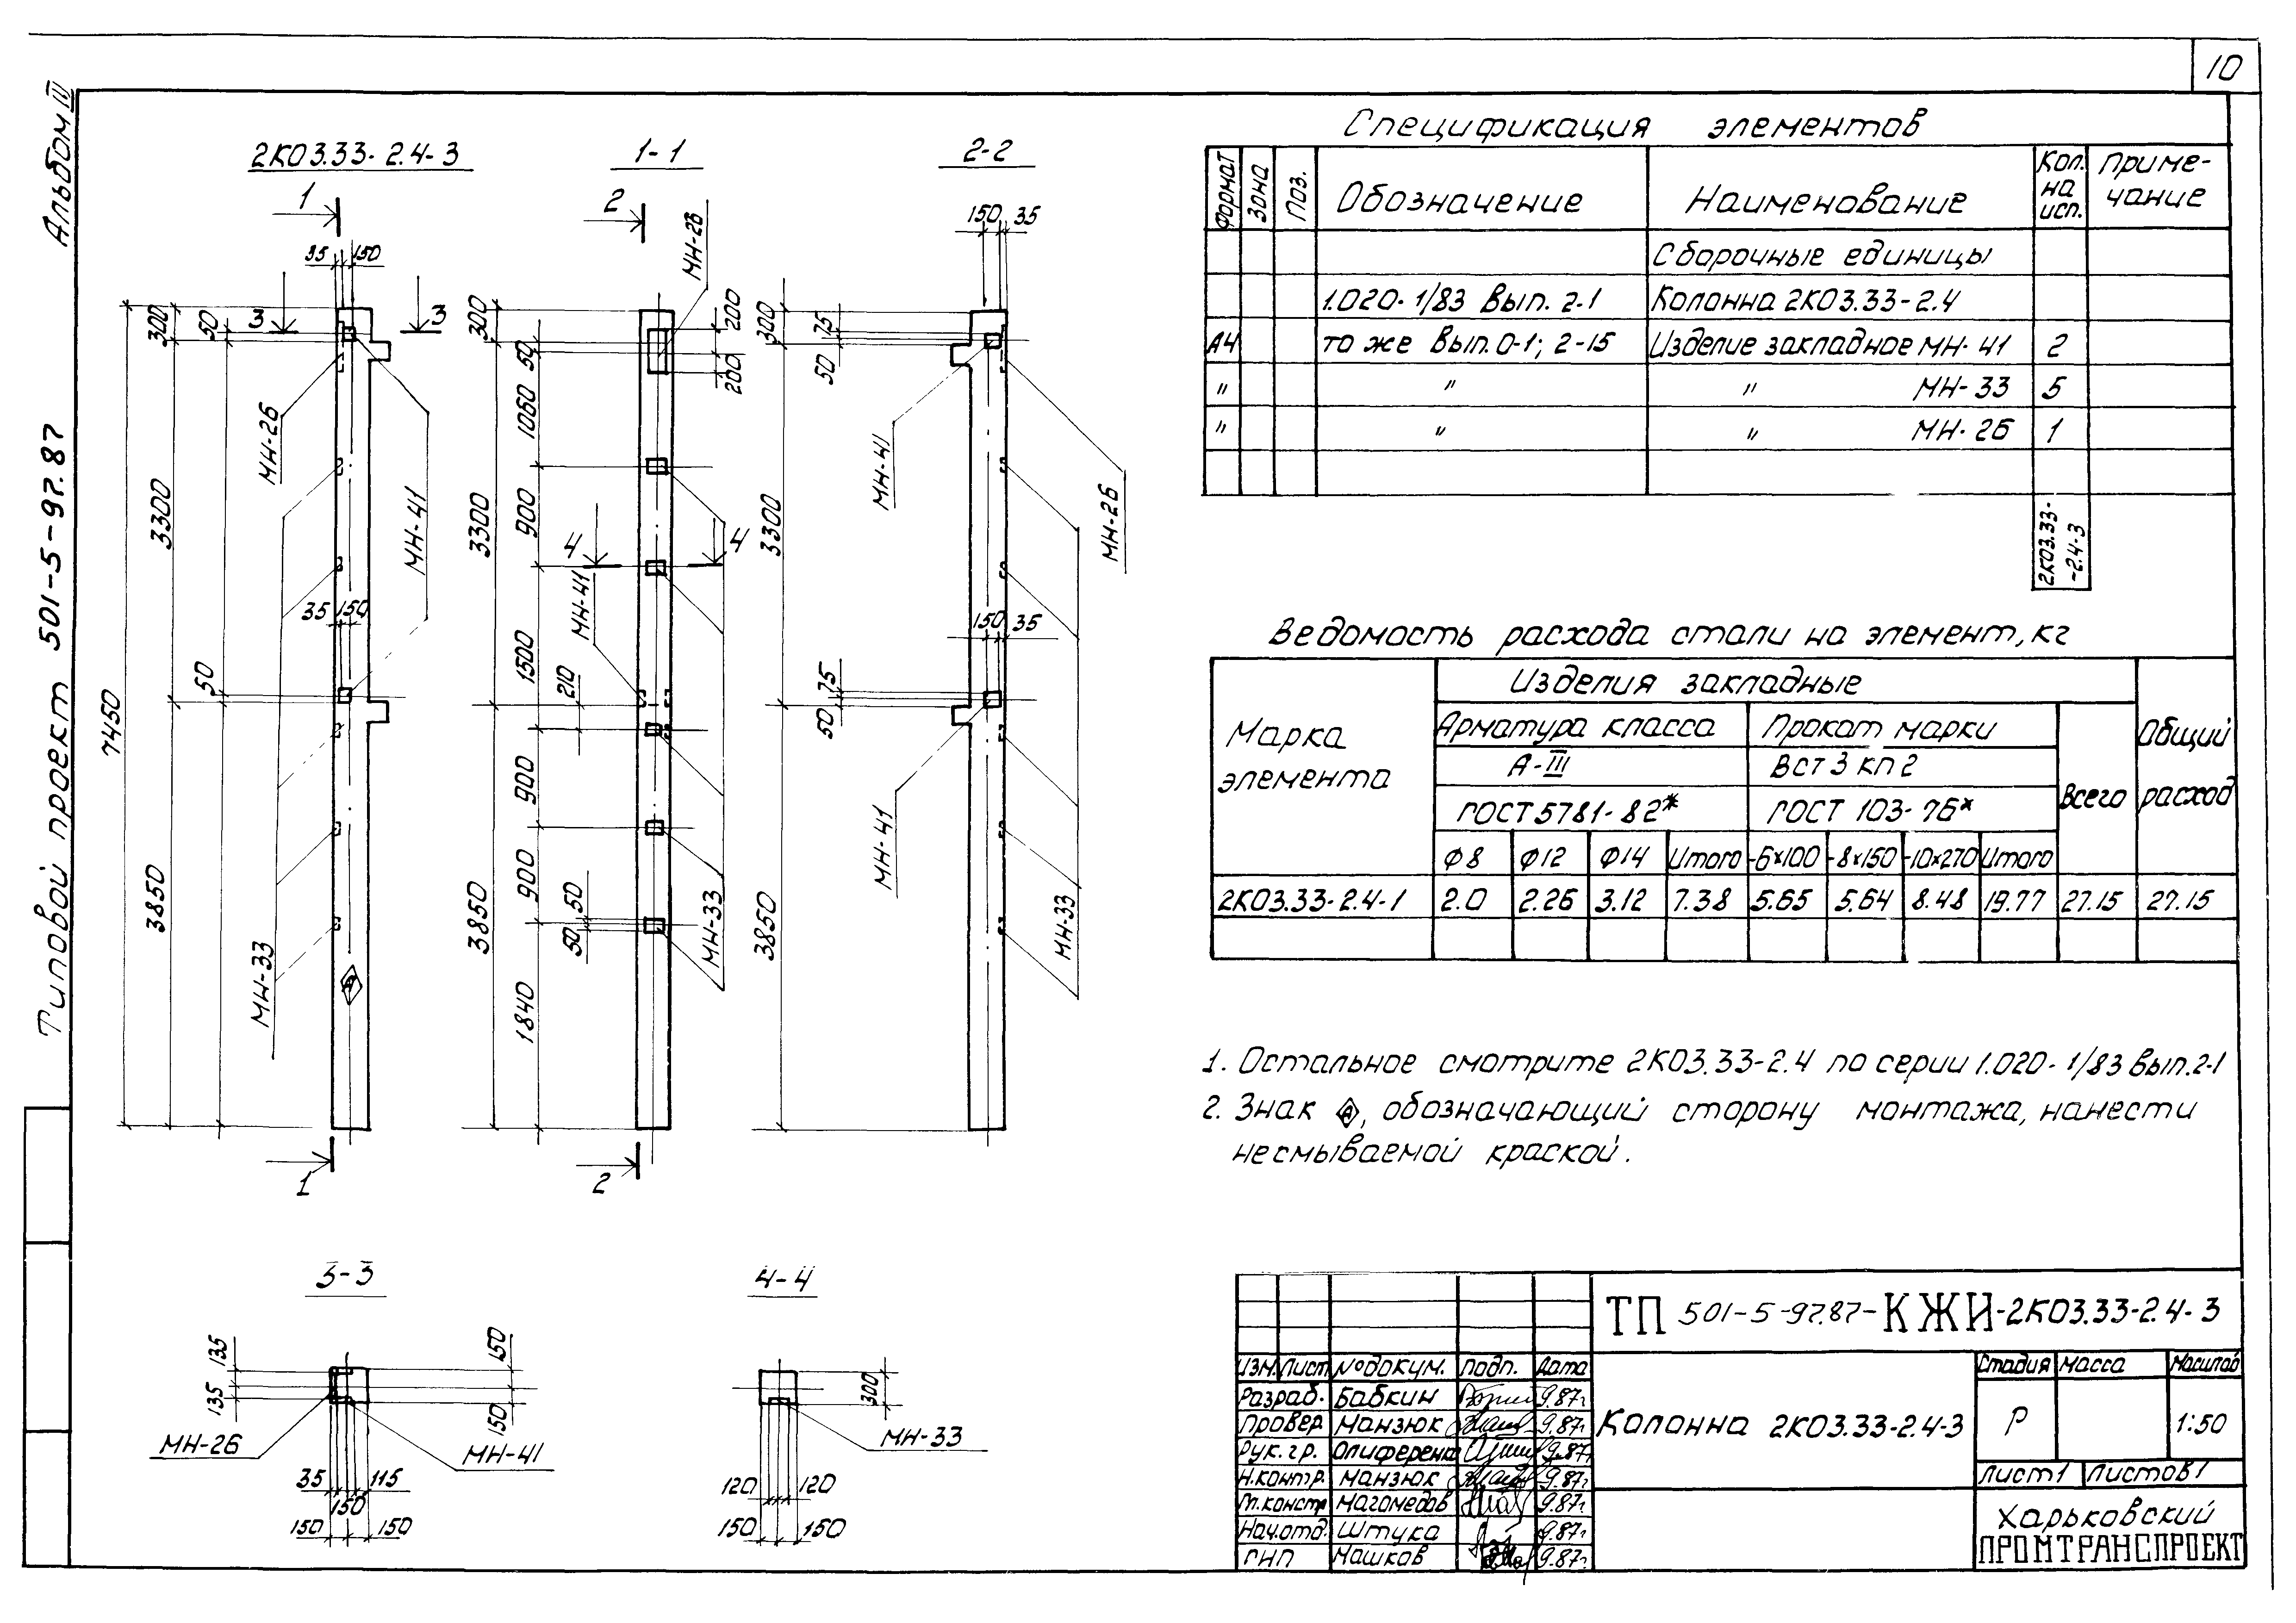 10
Альбом IV
Типовой проект 501-5-97.87
2К03.33-2.4-3
1-1
2-2
1
2
35 150
3 3
300
50
МН-26
МН-41
3300
7450
35 150
50
3850
МН-33
А
1
МН-26
200
200
300
50
1060
900
3300
4 4
МН-41
1500
210
900
900
50
50
МН-33
3850
1840
2
150 35
300
75
50
МН-41
МН-26
3300
150 35
75
50
МН-41
3850
МН-33
3-3
135
135
150
150
МН-26
МН-41
35 115
150
150 150
4-4
300
МН-33
120 120
150 150
Спецификация элементов
Формат Зона Поз. Обозначение Наименование Кол. на исп. Приме-чание
Сборочные единицы
1.020-1/83 Вып. 2-1 Колонна 2К03.33-2.4
А4 то же Вып. 0-1; 2-15 Изделие закладное МН-41 2
" " " МН-33 5
" " " МН-26 1
2К03.33-
-2.4-3
Ведомость расхода стали на элемент, кг
Марка элемента
Изделия закладные
Общий расход
Арматура класса Прокат марки
Всего
А-III ВСт3кп2
ГОСТ 5781-82* ГОСТ 103-76*
Ф8 Ф12 Ф14 Итого -6×100 -8×150 -10×270 Итого
2К03.33-2.4-1 2.0 2.26 3.12 7.38 5.65 5.64 8.48 19.77 27.15 27.15
1. Остальное смотрите 2К03.33-2.4 по серии 1.020-1/83 Вып.2-1
2. Знак А, обозначающий сторону монтажа, нанести
несмываемой краской.
ТП 501-5-97.87-КЖИ-2К03.33-2.4-3
Изм. Лист №докум. Подп. Дата
Разраб. Бабкин 9.87г
Провер Манзюк 9.87г
Рук.гр. Олиференк 9.87г
Н.контр. Манзюк 9.87г
Гл.констр Магомедов 9.87г
Нач.отд. Штука 9.87г
ГИП Машков 9.87г
Колонна 2К03.33-2.4-3
Стадия Масса Масштаб
Р 1:50
Лист 1 Листов 1
Харьковский
ПРОМТРАНСПРОЕКТ